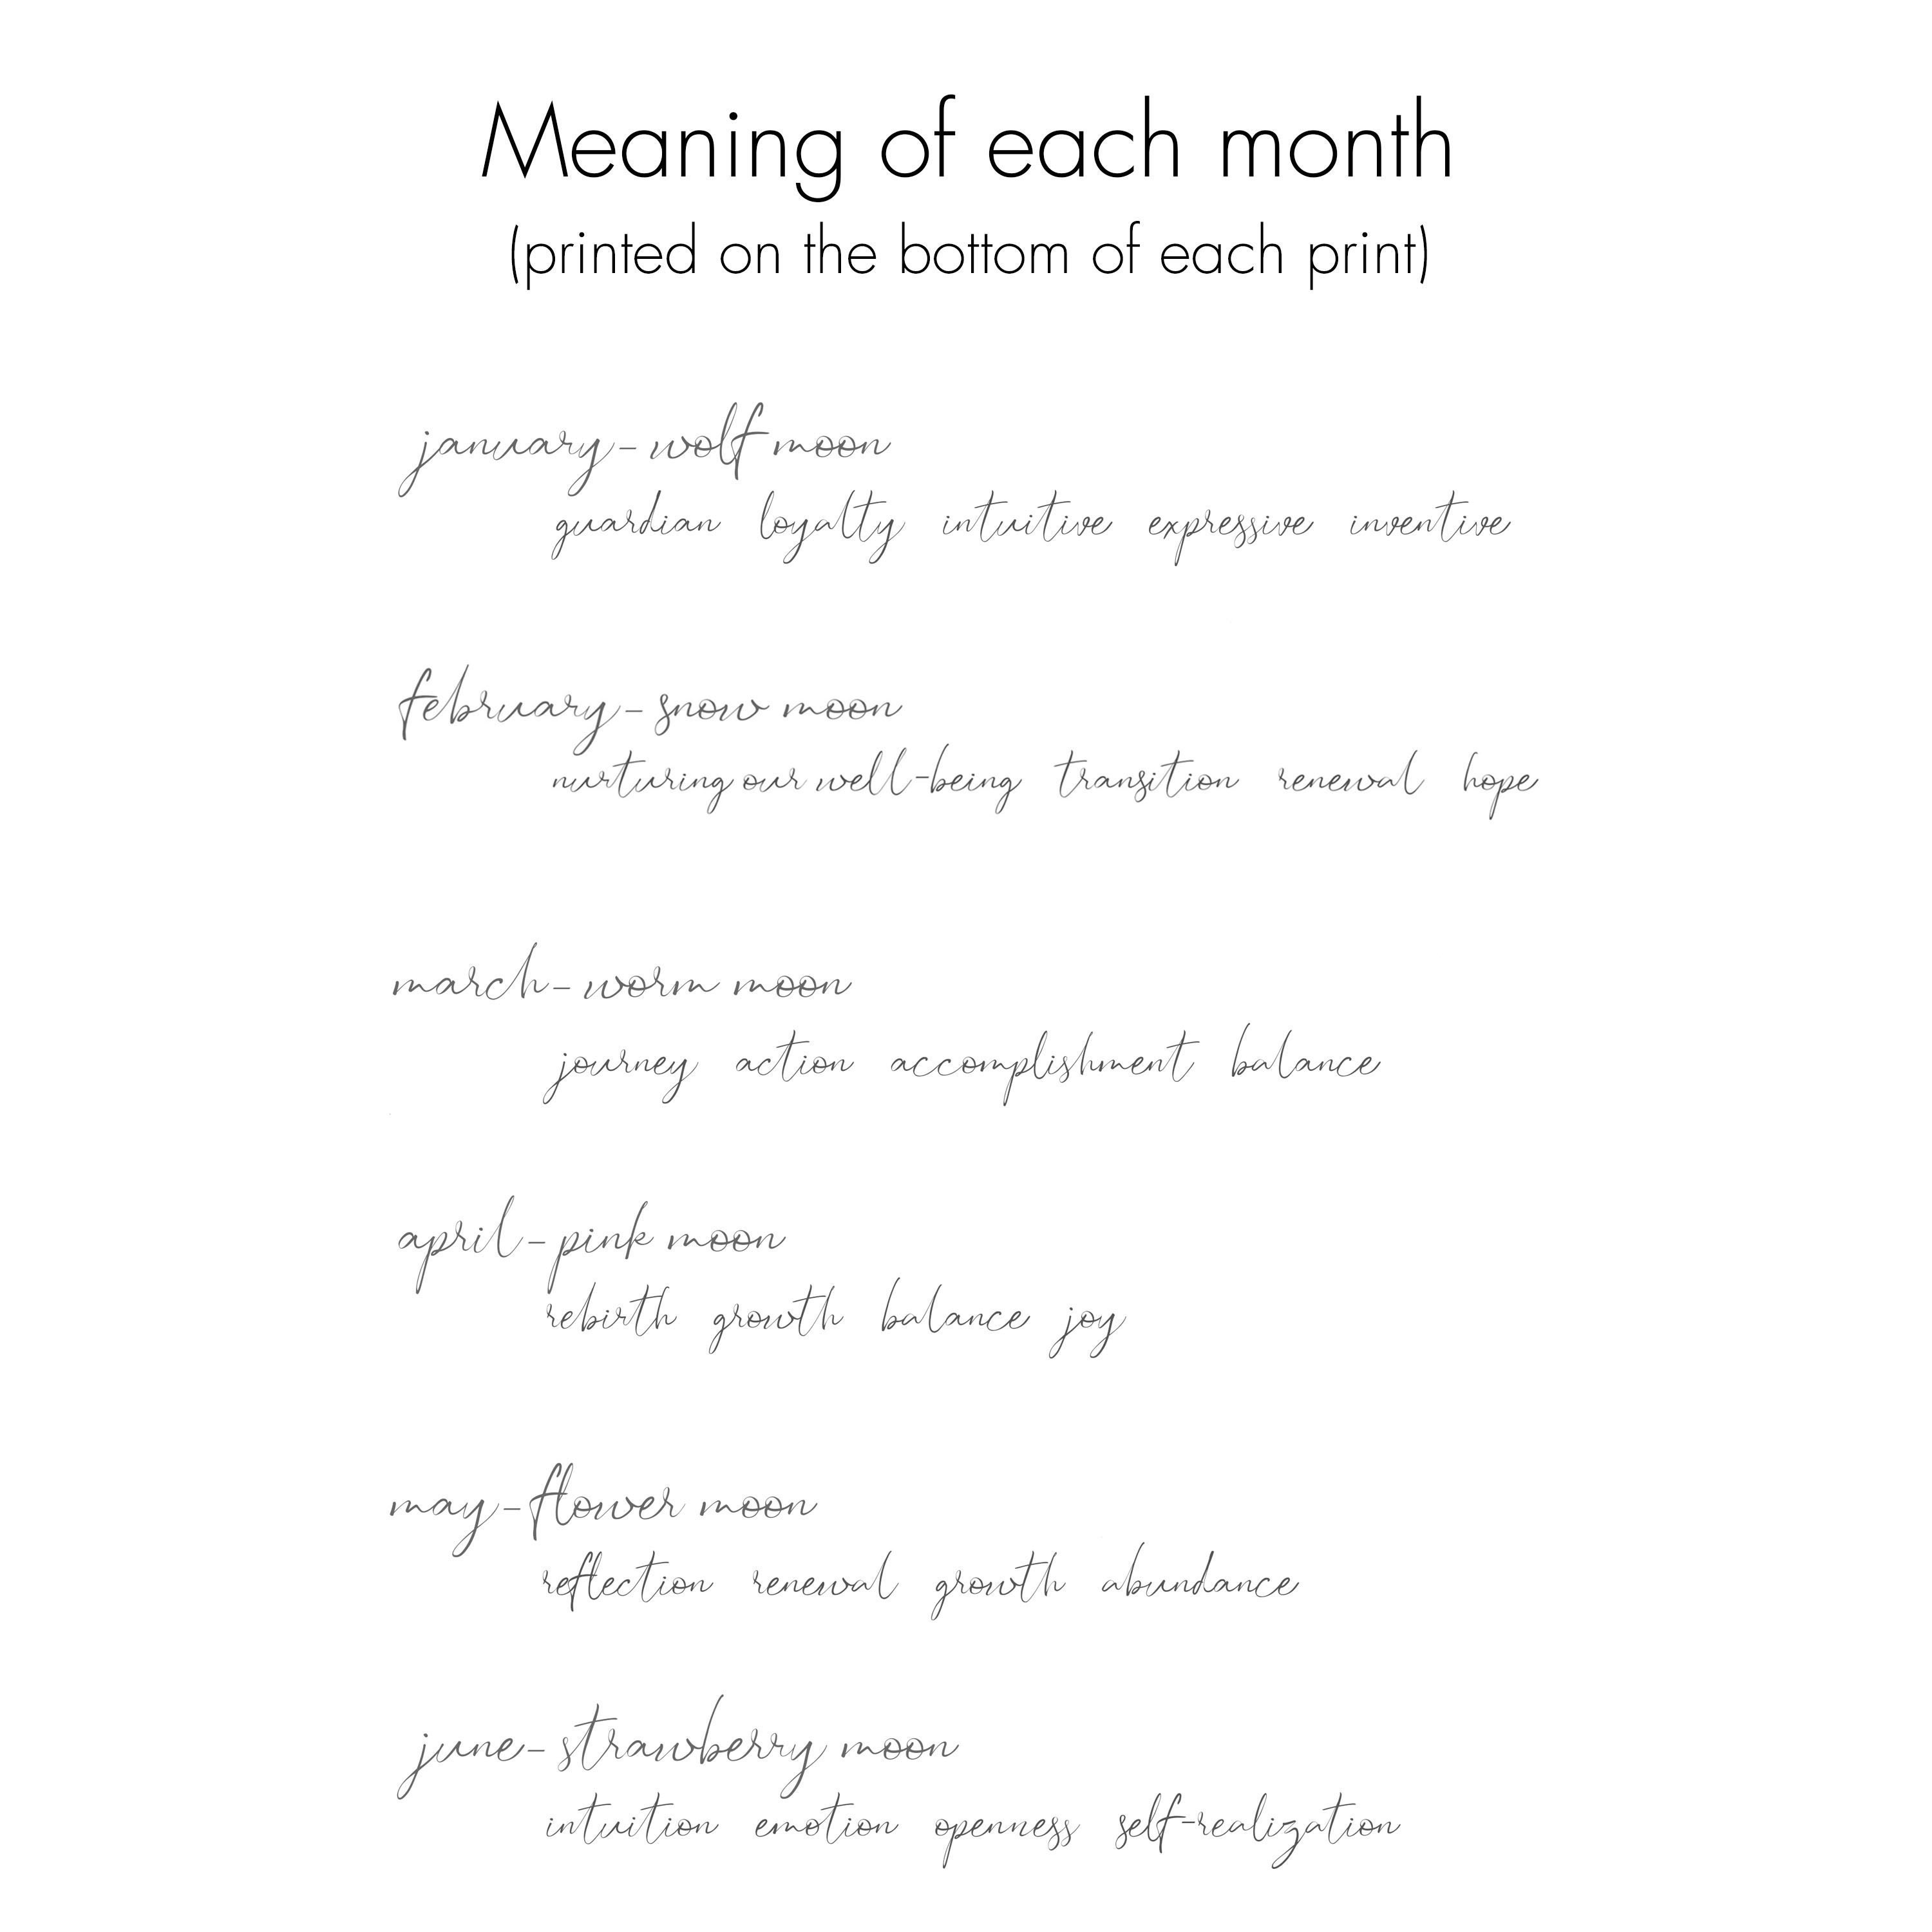 Meaning of each month
(printed on the bottom of each print)
january - wolf moon
guardian loyalty intuitive expressive inventive
february - snow moon
nurturing our well-being transition renewal hope
march - worm moon
journey action accomplishment balance
april - pink moon
rebirth growth balance joy
may - flower moon
reflection renewal growth abundance
june - strawberry moon
intuition emotion openness self-realization